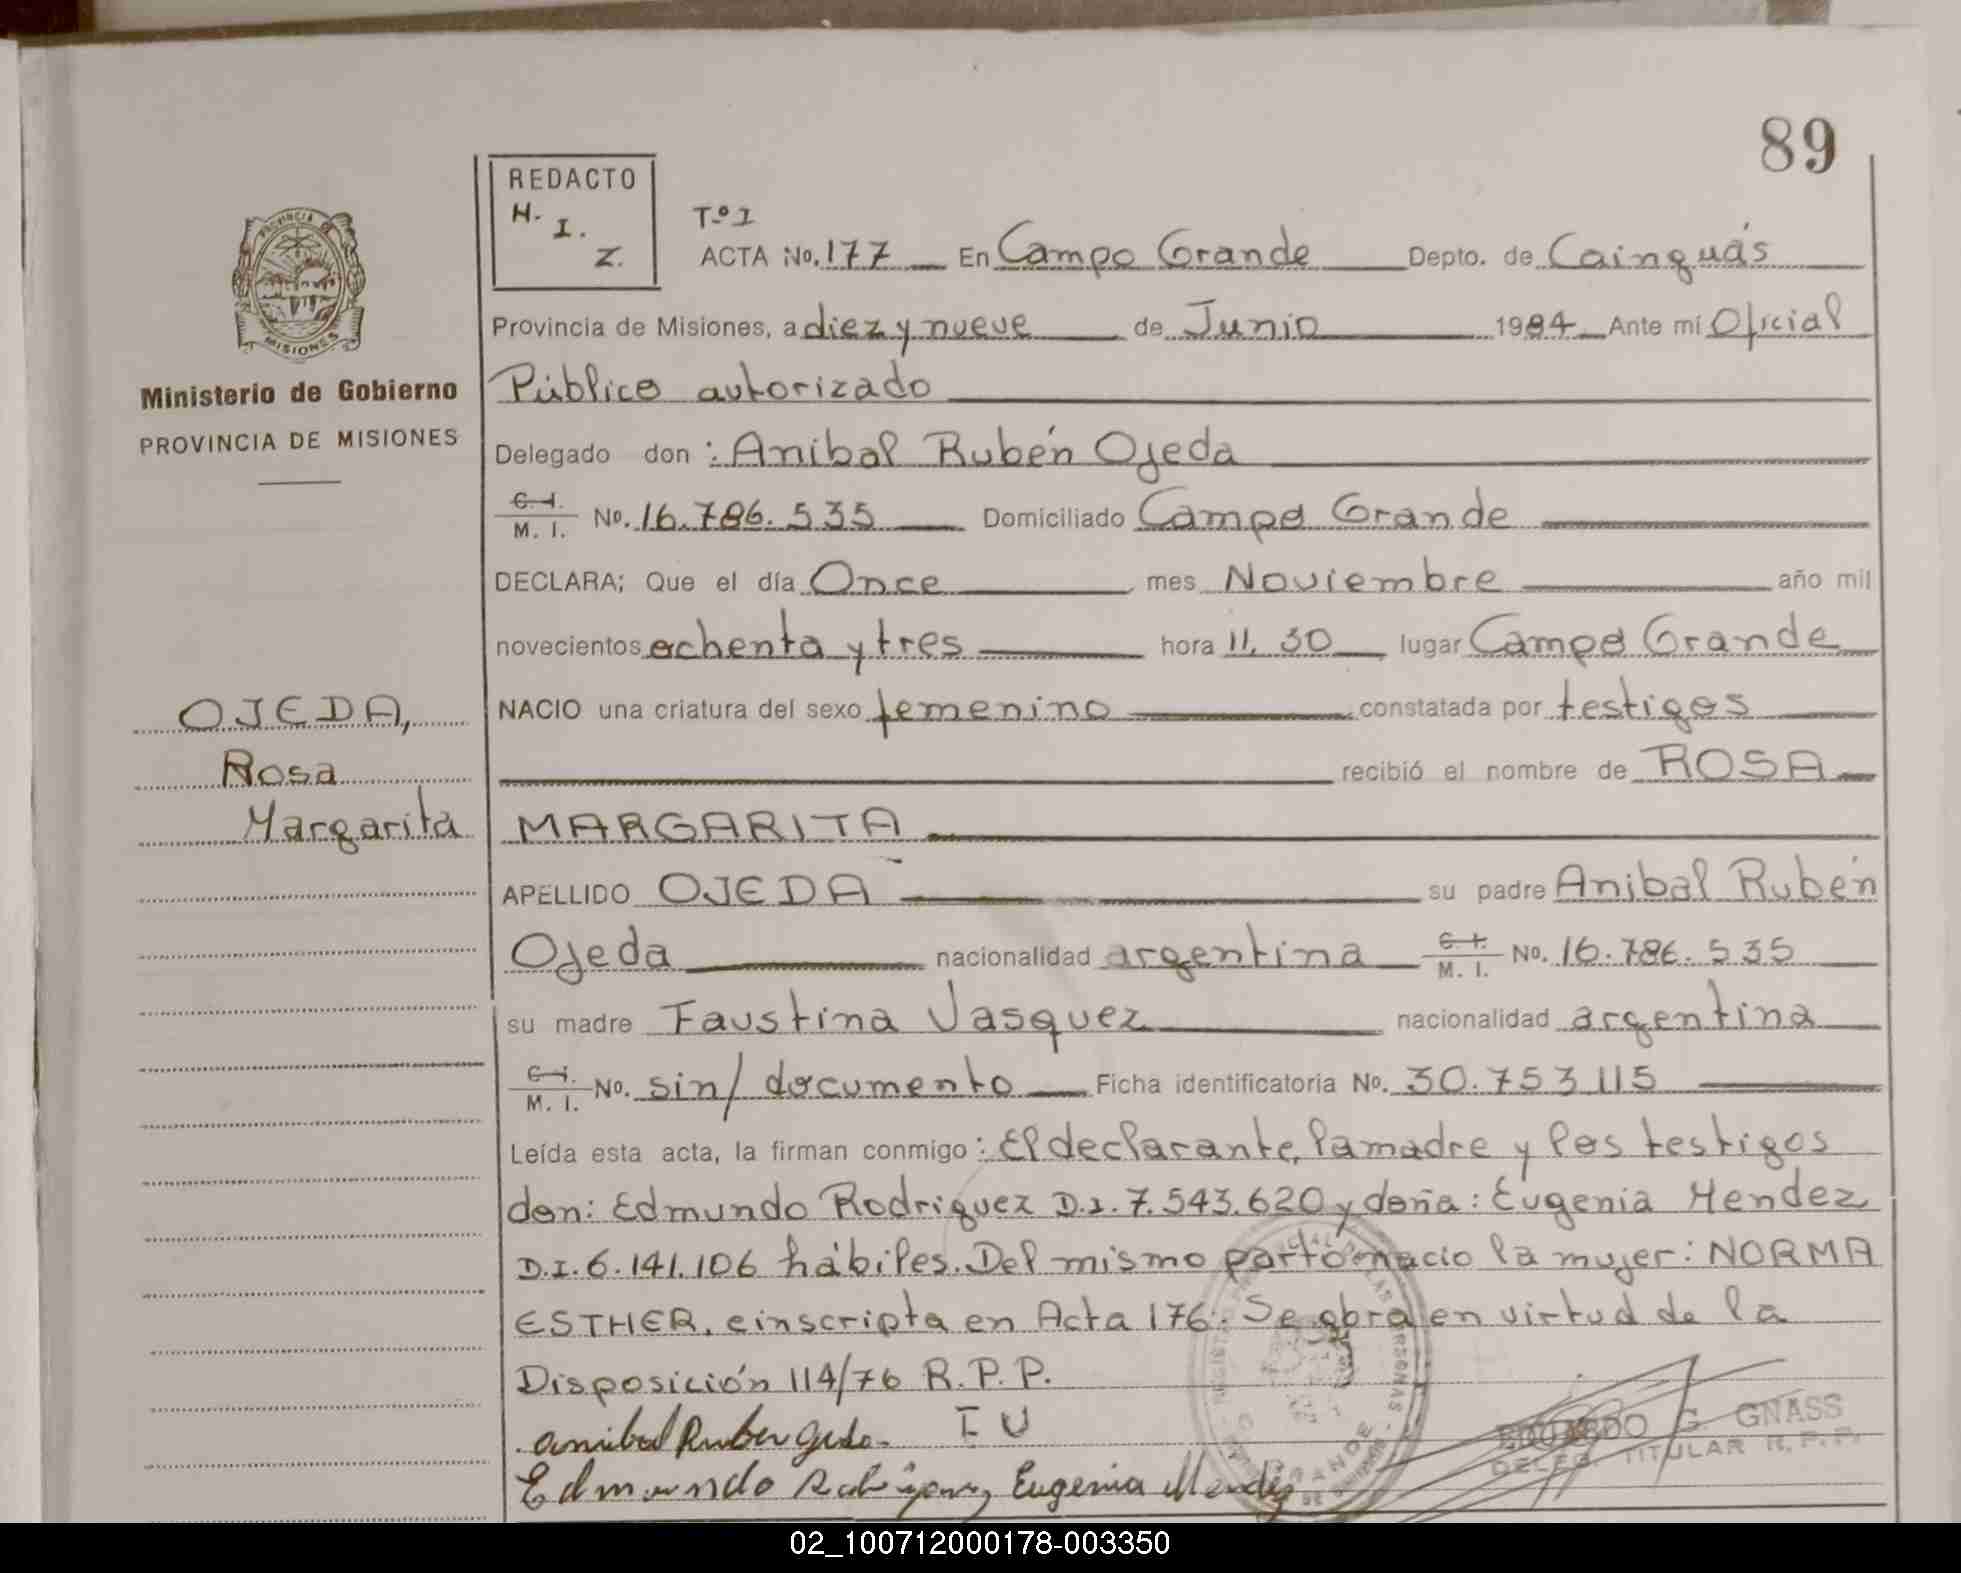 89
REDACTO
H. I. Z.
T.º I
ACTA No. 177 En Campo Grande Depto. de Cainguás
Provincia de Misiones, a diez y nueve de Junio 1984 Ante mí Oficial
Público autorizado
PROVINCIA DE
MISIONES
Ministerio de Gobierno
PROVINCIA DE MISIONES
Delegado don : Anibal Rubén Ojeda
C. I.
M. I. No. 16.786.535 Domiciliado Campo Grande
DECLARA; Que el día Once mes Noviembre año mil
novecientos ochenta y tres hora 11,30 lugar Campo Grande
OJEDA,
Rosa
Margarita
NACIO una criatura del sexo femenino constatada por testigos
recibió el nombre de ROSA
MARGARITA
APELLIDO OJEDA su padre Anibal Rubén
Ojeda nacionalidad argentina C. I. M. I. No. 16.786.535
su madre Faustina Vasquez nacionalidad argentina
C. I.
M. I. No. sin/documento Ficha identificatoria No. 30.753.115
Leída esta acta, la firman conmigo : El declarante, la madre y los testigos
don: Edmundo Rodriguez D.I. 7.543.620 y doña: Eugenia Mendez
D.I. 6.141.106 hábiles. Del mismo parto nacio la mujer: NORMA
ESTHER, e inscripta en Acta 176. Se obra en virtud de la
Disposición 114/76 R.P.P.
Anibal Ruben Ojeda I U
Edmundo Rodriguez Eugenia Mendez
EDUARDO G. GNASS
DELEG. TITULAR R.P.P.
02_100712000178-003350